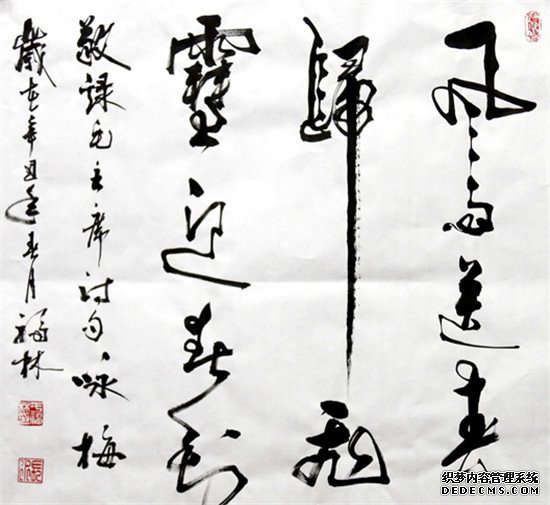 风雨送春
歸飛
雪迎春到
敬録毛主席诗句咏梅
歲在辛丑年春月福林
织梦内容管理系统
DEDECMS.COM